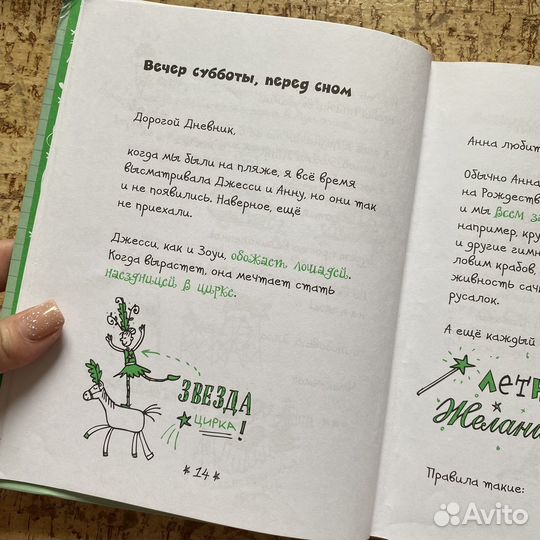 Вечер субботы, перед сном
Дорогой Дневник,
когда мы были на пляже, я всё время
высматривала Джесси и Анну, но они так
и не появились. Наверное, ещё
не приехали.
Джесси, как и Зоуи, обожает лошадей.
Когда вырастет, она мечтает стать
наездницей в цирке.
ЗВЕЗДА
ЦИРКА!
14
Анна любит
Обычно Анна
на Рождеств
и мы всем за
например, кру
и другие гимн
ловим крабов,
живность сач
русалок.
А ещё каждый
Летн
Желани
Правила такие:
Avito